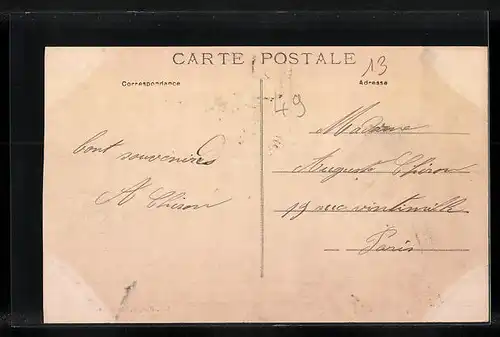 CARTE POSTALE
13
Correspondance
Adresse
49
Madame
bont souvenirs
Auguste Chiron
A Chiron
19 rue vintimille
Paris